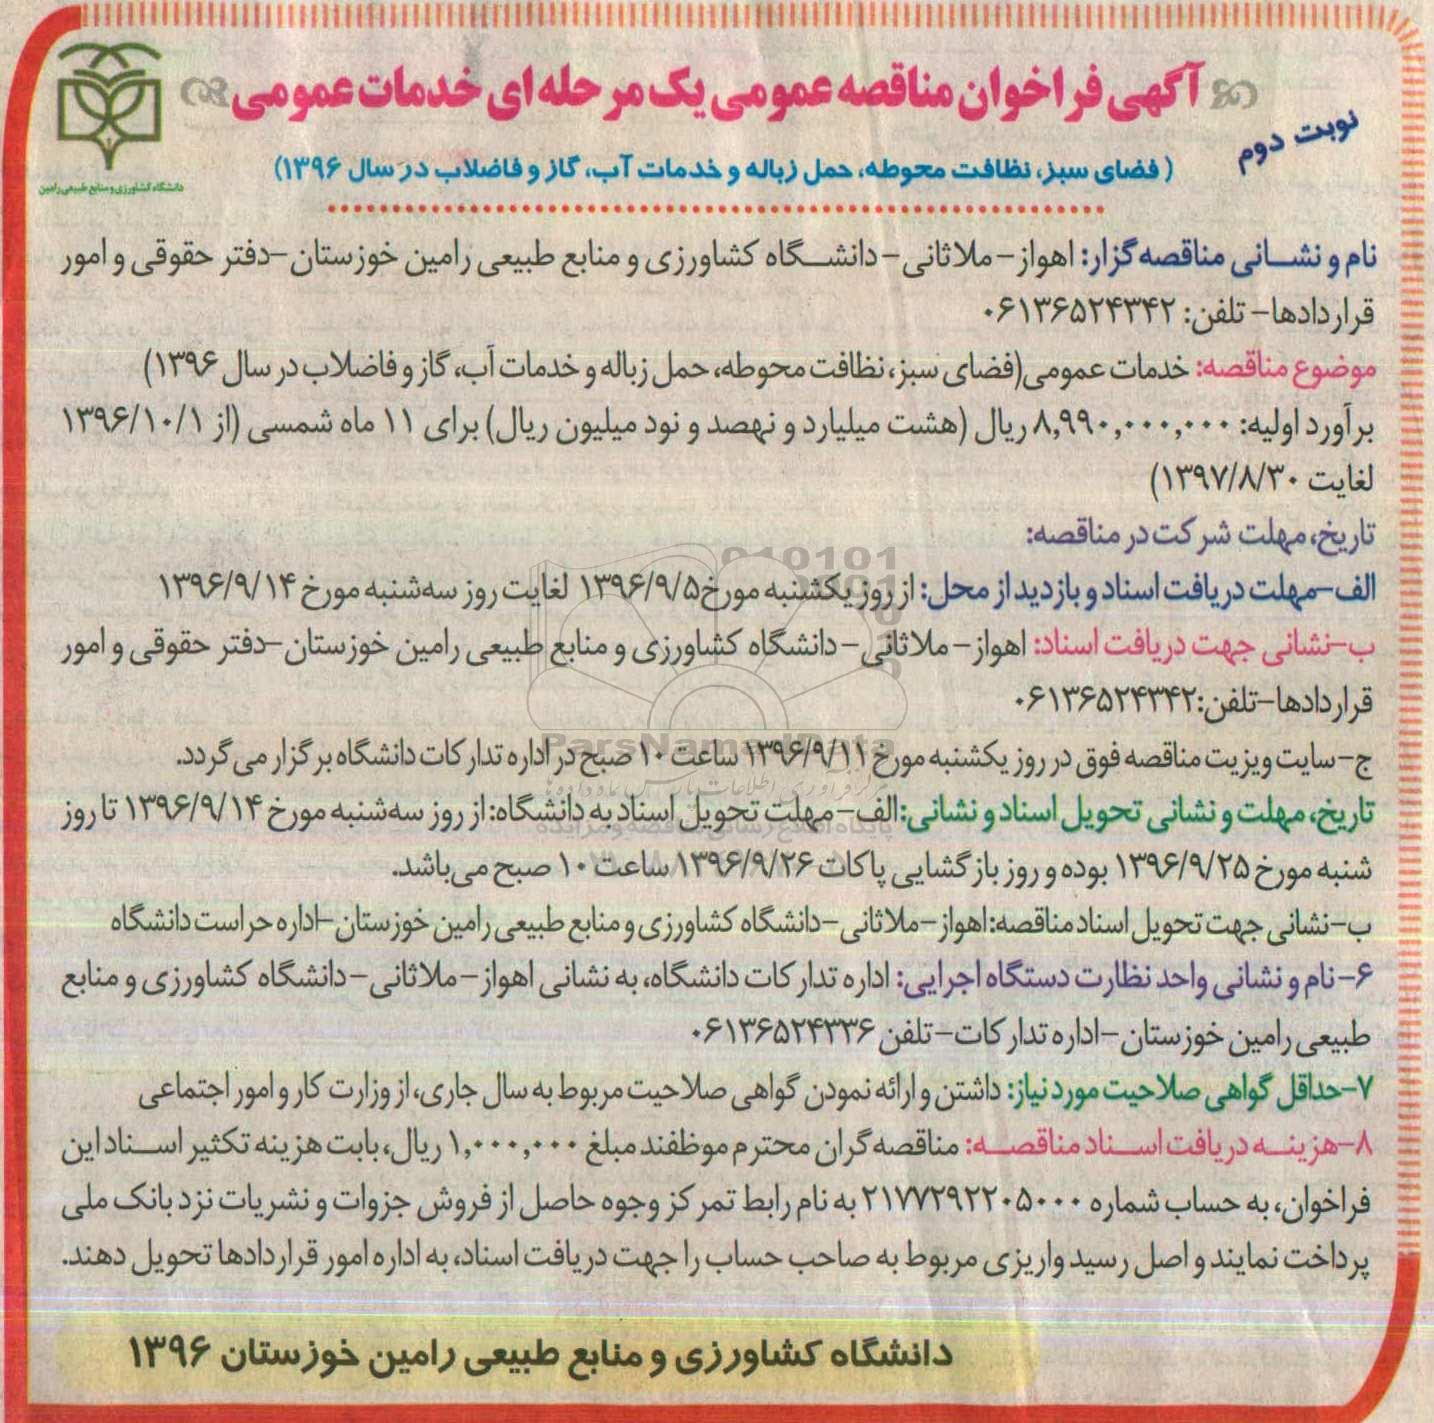 آگهی فراخوان مناقصه عمومی یک مرحله ای خدمات عمومی
نوبت دوم
(فضای سبز، نظافت محوطه، حمل زباله و خدمات آب، گاز و فاضلاب در سال ۱۳۹۶)
دانشگاه کشاورزی و منابع طبیعی رامین
نام و نشانی مناقصه گزار: اهواز- ملاثانی- دانشگاه کشاورزی و منابع طبیعی رامین خوزستان-دفتر حقوقی و امور
قراردادها- تلفن: ۰۶۱۳۶۵۲۴۳۴۲
موضوع مناقصه: خدمات عمومی(فضای سبز، نظافت محوطه، حمل زباله و خدمات آب، گاز و فاضلاب در سال ۱۳۹۶)
برآورد اولیه: ۸,۹۹۰,۰۰۰,۰۰۰ ریال (هشت میلیارد و نهصد و نود میلیون ریال) برای ۱۱ ماه شمسی (از ۱۳۹۶/۱۰/۱
لغایت ۱۳۹۷/۸/۳۰)
تاریخ، مهلت شرکت در مناقصه:
الف-مهلت دریافت اسناد و بازدید از محل: از روز یکشنبه مورخ۱۳۹۶/۹/۵ لغایت روز سه‌شنبه مورخ ۱۳۹۶/۹/۱۴
ب-نشانی جهت دریافت اسناد: اهواز- ملاثانی- دانشگاه کشاورزی و منابع طبیعی رامین خوزستان-دفتر حقوقی و امور
قراردادها-تلفن:۰۶۱۳۶۵۲۴۳۴۲
ج-سایت ویزیت مناقصه فوق در روز یکشنبه مورخ ۱۳۹۶/۹/۱۱ ساعت ۱۰ صبح در اداره تدارکات دانشگاه برگزار می گردد.
تاریخ، مهلت و نشانی تحویل اسناد و نشانی:الف- مهلت تحویل اسناد به دانشگاه: از روز سه‌شنبه مورخ ۱۳۹۶/۹/۱۴ تا روز
شنبه مورخ ۱۳۹۶/۹/۲۵ بوده و روز بازگشایی پاکات ۱۳۹۶/۹/۲۶ ساعت ۱۰ صبح می‌باشد.
ب-نشانی جهت تحویل اسناد مناقصه:اهواز-ملاثانی-دانشگاه کشاورزی و منابع طبیعی رامین خوزستان-اداره حراست دانشگاه
۶- نام و نشانی واحد نظارت دستگاه اجرایی: اداره تدارکات دانشگاه، به نشانی اهواز- ملاثانی- دانشگاه کشاورزی و منابع
طبیعی رامین خوزستان-اداره تدارکات-تلفن ۰۶۱۳۶۵۲۴۳۳۶
۷-حداقل گواهی صلاحیت مورد نیاز: داشتن و ارائه نمودن گواهی صلاحیت مربوط به سال جاری، از وزارت کار و امور اجتماعی
۸-هزینه دریافت اسناد مناقصه: مناقصه گران محترم موظفند مبلغ ۱,۰۰۰,۰۰۰ ریال، بابت هزینه تکثیر اسناد این
فراخوان، به حساب شماره ۲۱۷۷۲۹۲۲۰۵۰۰۰ به نام رابط تمرکز وجوه حاصل از فروش جزوات و نشریات نزد بانک ملی
پرداخت نمایند و اصل رسید واریزی مربوط به صاحب حساب را جهت دریافت اسناد، به اداره امور قراردادها تحویل دهند.
دانشگاه کشاورزی و منابع طبیعی رامین خوزستان ۱۳۹۶
ParsNamadData